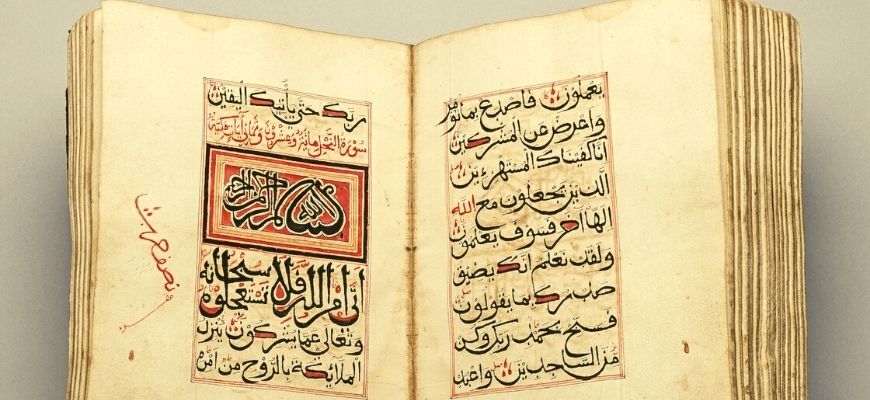 يعملون فاصدع بما تؤمر
واعرض عن المشركين
انا كفيناك المستهزءين
الذين يجعلون مع الله
الها اخر فسوف يعلمون
ولقد نعلم انك يضيق
صدرك بما يقولون
فسبح بحمد ربك وكن
من الساجدين واعبد
ربك حتى ياتيك اليقين
سورة النحل مائة وعشرون وثماني اية مكية
بسم الله الرحمن الرحيم
اتى امر الله فلا تستعجلوه سبحانه
وتعالى عما يشركون ينزل
الملائكة بالروح من امره
نصف حزب